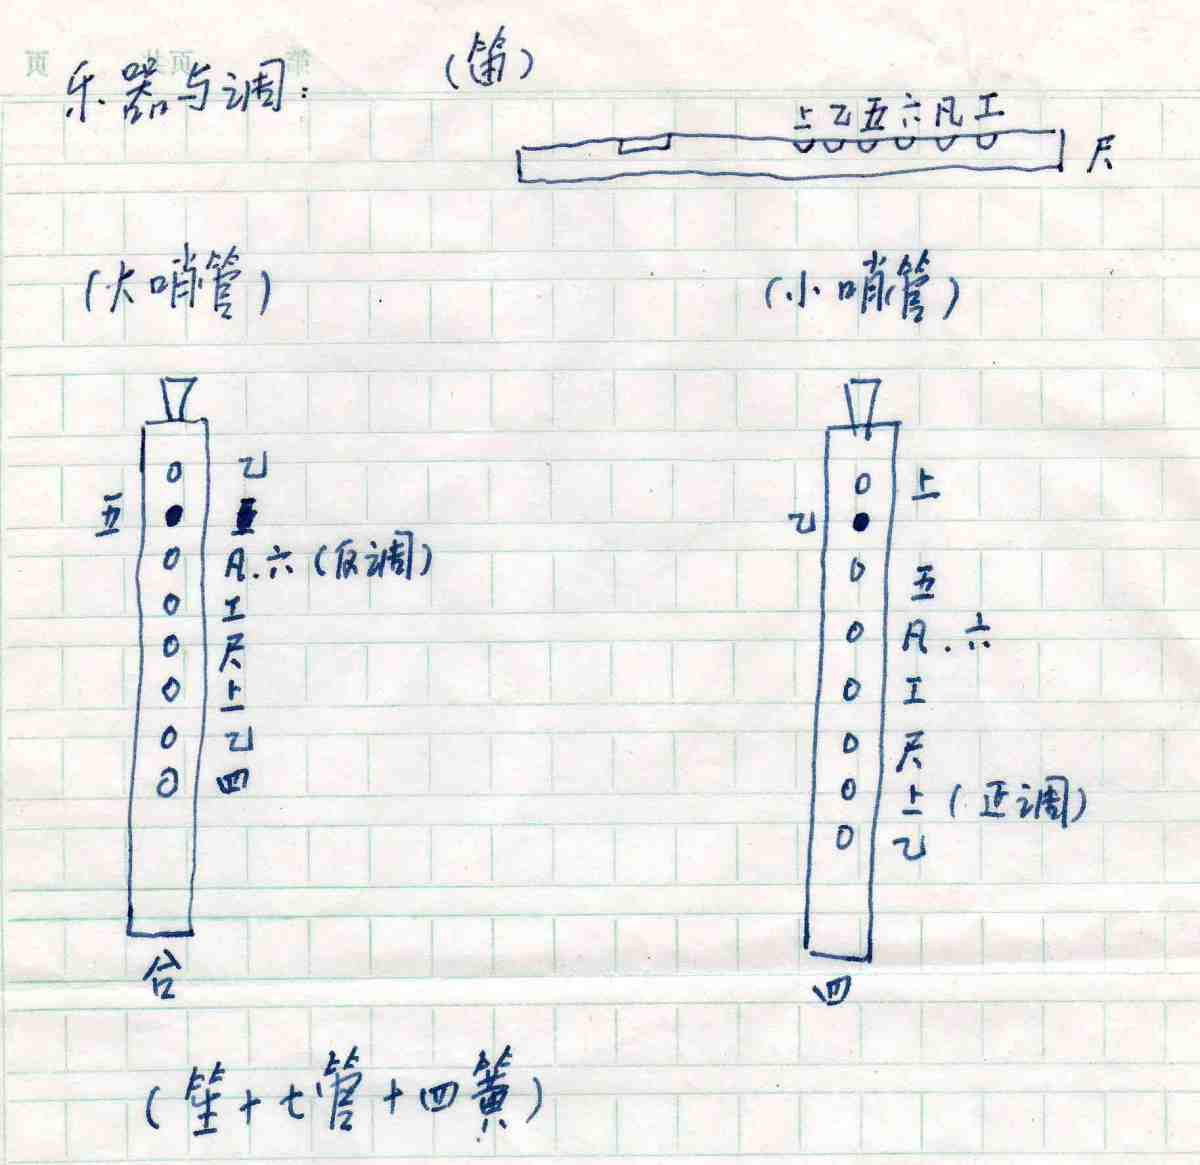 乐器与调：
(笛)
上乙五六凡工
尺
(大哨管)
乙
五
凡.六(反调)
工
尺
上
乙
四
合
(小哨管)
上
乙
五
凡.六
工
尺
上(正调)
乙
四
(笙十七管十四簧)